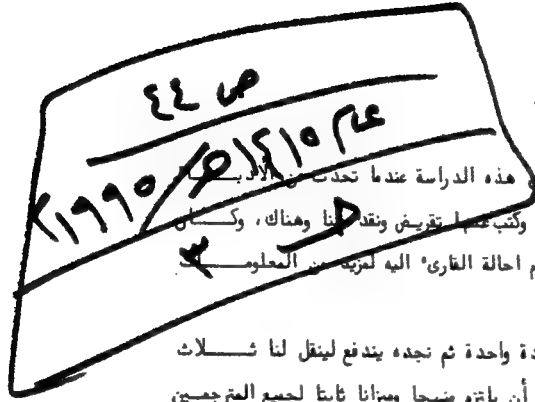 ص ٤٤
عام ١٤١٥هـ/١٩٩٥م
هذه الدراسة عندما تحدث عن الادبـــــاء
وكتب عنهما تقريض ونقد هنا وهناك، وكـــان
احالة القارىء اليه لمزيد من المعلومـــــات
حـ ٣
واحدة ثم نجده يندفع لينقل لنا ثـــــلاث
أن يلتزم منهجا وميزانا ثابتا لجميع المترجمـــين